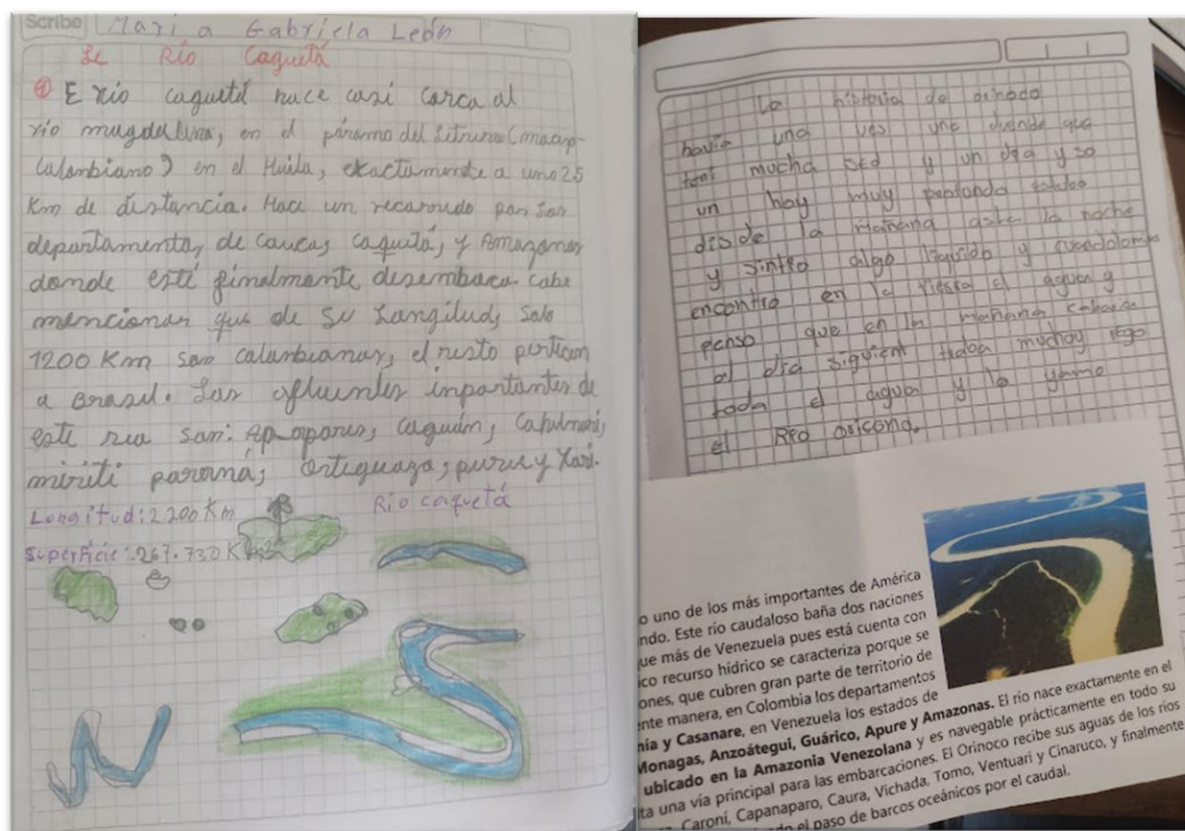 Scribe Maria Gabriela León
Le Río Caquetá
① E río caquetá nace casi carca al
río magdalena, en el páramo del Letrero (macap-
Calonbiano) en el Huila, exactamente a uno 25
Km de distancia. Hace un recorrudo por Los
departamento, de Cauca, caquitá, y Amazonas
donde esté finalmente desemboca. cabe
mencionar que de su Longilud, Solo
1200 Km son calonbianos, el resto perticen
a Brasil. Las afluentes inportantes de
este rio son: Apaporis, caguán, Cahuinarí,
miriti paraná, Orteguaza, purue y Yarí.
Longitud: 2.200 Km
Río caquetá
Superficie: 267.730 Km
La historia de
havia una ves uno duende que
teni mucha sed y un dia y so
un hoy muy profundo
disde la mañana aste la noche
y sintio algo liquido y
encontro en la tiesra el aguan y
penso que en la mañana
al dia siguient
toda el aguan y lo yamo
el Rio
o uno de los más importantes de América
ndo. Este río caudaloso baña dos naciones
ue más de Venezuela pues está cuenta con
ico recurso hídrico se caracteriza porque se
ones, que cubren gran parte de territorio de
ente manera, en Colombia los departamentos
nía y Casanare, en Venezuela los estados de
Monagas, Anzoátegui, Guárico, Apure y Amazonas. El río nace exactamente en el
ubicado en la Amazonia Venezolana y es navegable prácticamente en todo su
ta una vía principal para las embarcaciones. El Orinoco recibe sus aguas de los ríos
Caroní, Capanaparo, Caura, Vichada, Tomo, Ventuari y Cinaruco, y finalmente
el paso de barcos oceánicos por el caudal.